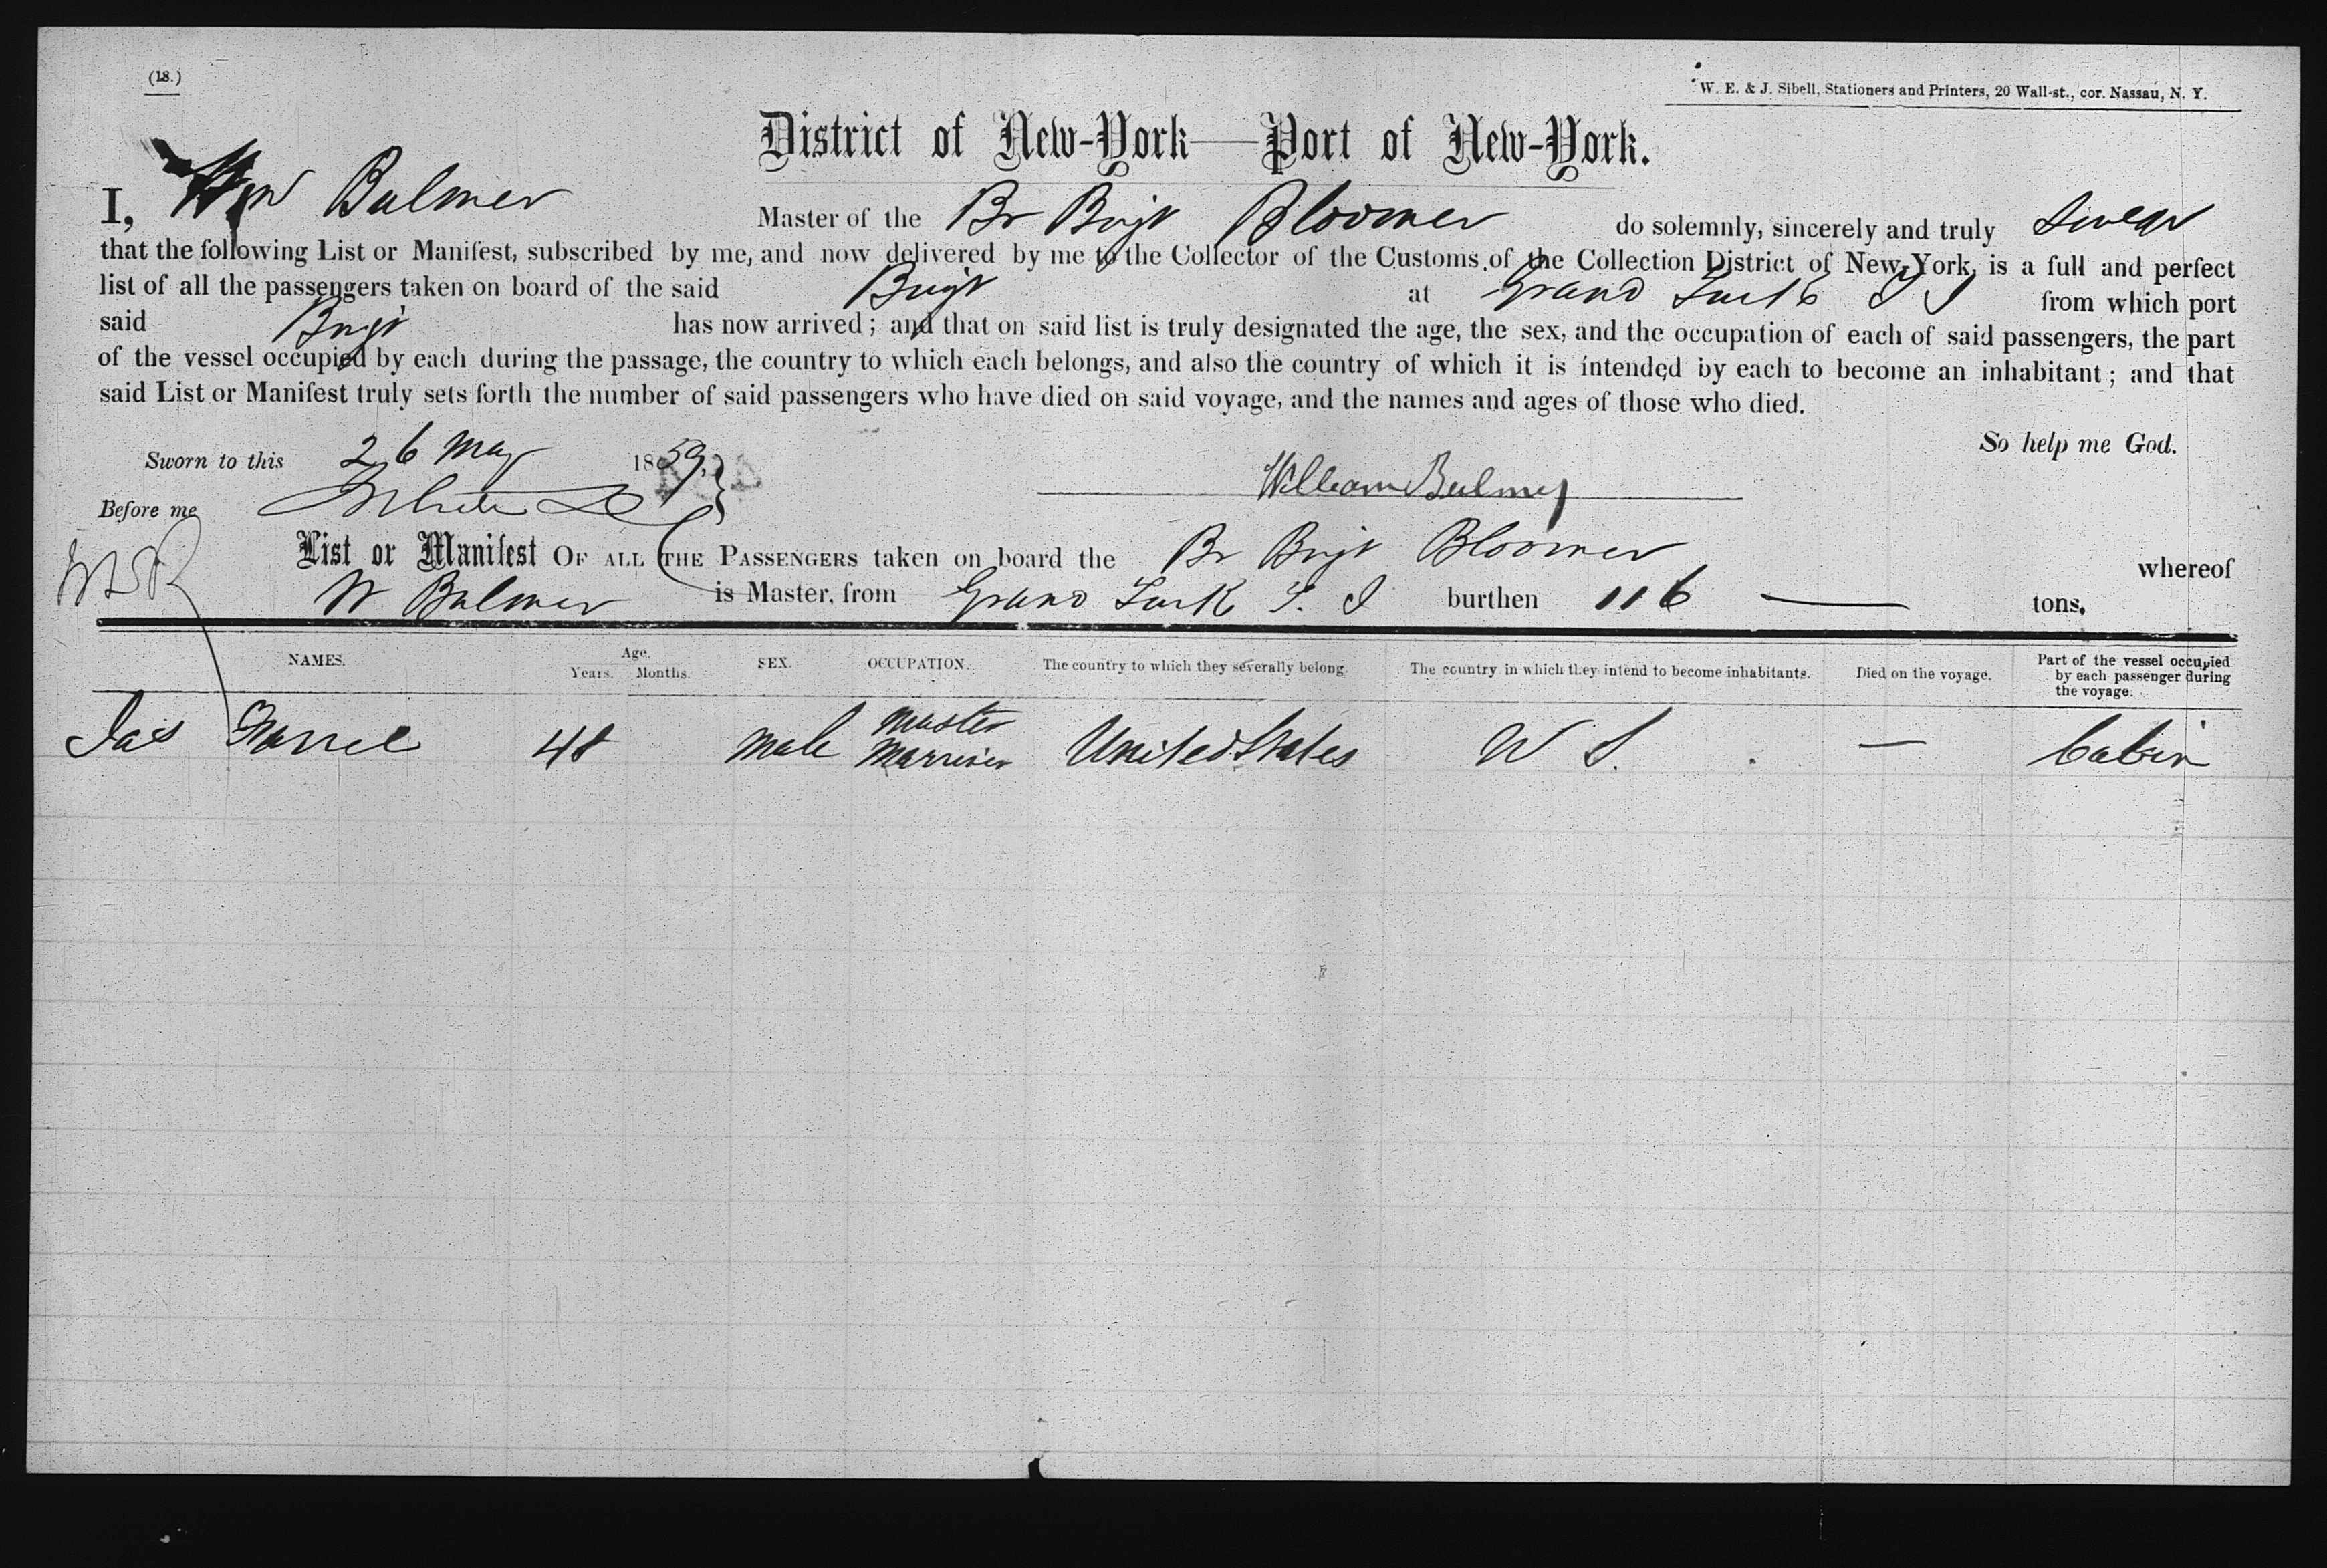 (18.)
W. E. & J. Sibell, Stationers and Printers, 20 Wall-st., cor. Nassau, N. Y.
District of New-York—Port of New-York.
I, Wm Bulmer Master of the Br Brigt Bloomer do solemnly, sincerely and truly Swear
that the following List or Manifest, subscribed by me, and now delivered by me to the Collector of the Customs of the Collection District of New-York, is a full and perfect
list of all the passengers taken on board of the said Brigt at Grand Turk T I from which port
said Brigt has now arrived; and that on said list is truly designated the age, the sex, and the occupation of each of said passengers, the part
of the vessel occupied by each during the passage, the country to which each belongs, and also the country of which it is intended by each to become an inhabitant; and that
said List or Manifest truly sets forth the number of said passengers who have died on said voyage, and the names and ages of those who died.
So help me God.
Sworn to this 26 May 1859,
William Bulmer
Before me
List or Manifest OF ALL THE PASSENGERS taken on board the Br Brigt Bloomer whereof
W Bulmer is Master, from Grand Turk T. I burthen 116 — tons.
NAMES. Age. Years. Months. SEX. OCCUPATION. The country to which they severally belong. The country in which they intend to become inhabitants. Died on the voyage. Part of the vessel occupied by each passenger during the voyage.
Jas 48 Male Master Marriner United States S. — Cabin